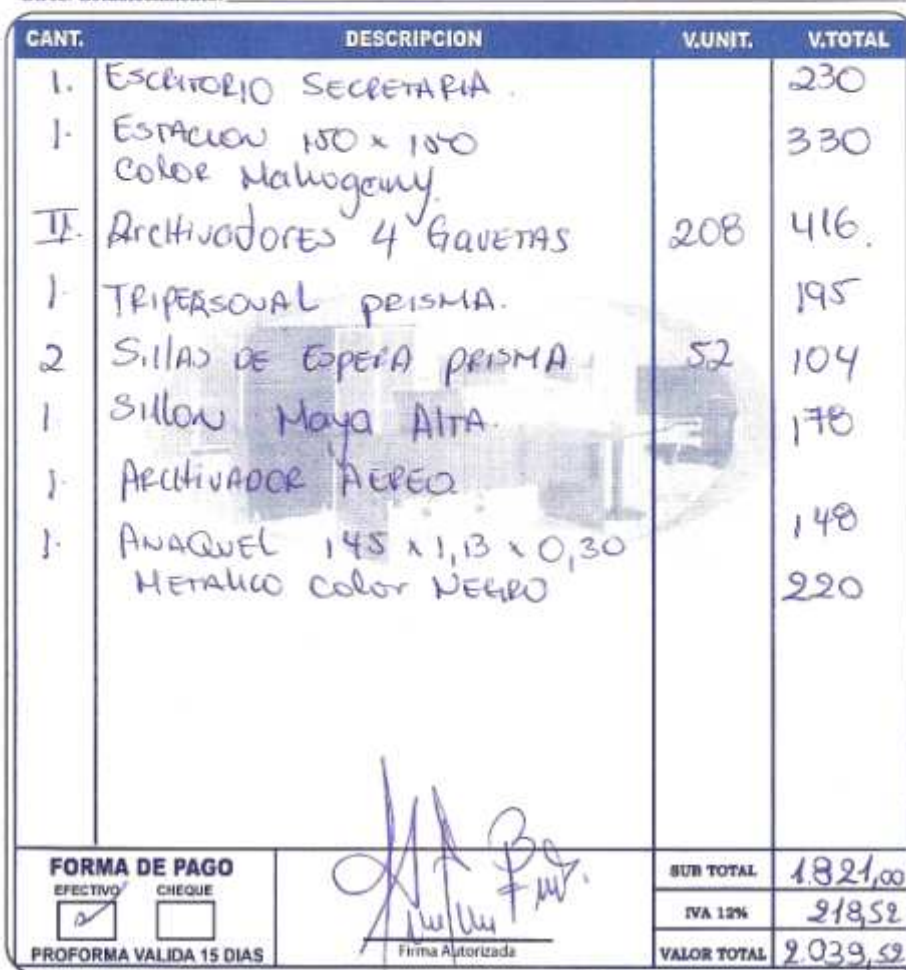 CANT. DESCRIPCION V.UNIT. V.TOTAL
1. ESCRITORIO SECRETARIA. 230
1. ESTACION 150 x 150 330
COLOR Mahogany
II. ArcHivadores 4 GavETAS 208 416.
1. TRIPERSONAL PRISMA. 195
2 SillAS DE ESPERA PRISMA 52 104
1 Sillon Maya AlTA. 178
1. ARCHIVADOR AEREO 148
1. ANAQUEL 145 x 1,13 x 0,30
METALICO Color NEGRO 220
FORMA DE PAGO
EFECTIVO CHEQUE
PROFORMA VALIDA 15 DIAS
Firma Autorizada
SUB TOTAL 1.821,00
IVA 12% 218,52
VALOR TOTAL 2.039,52